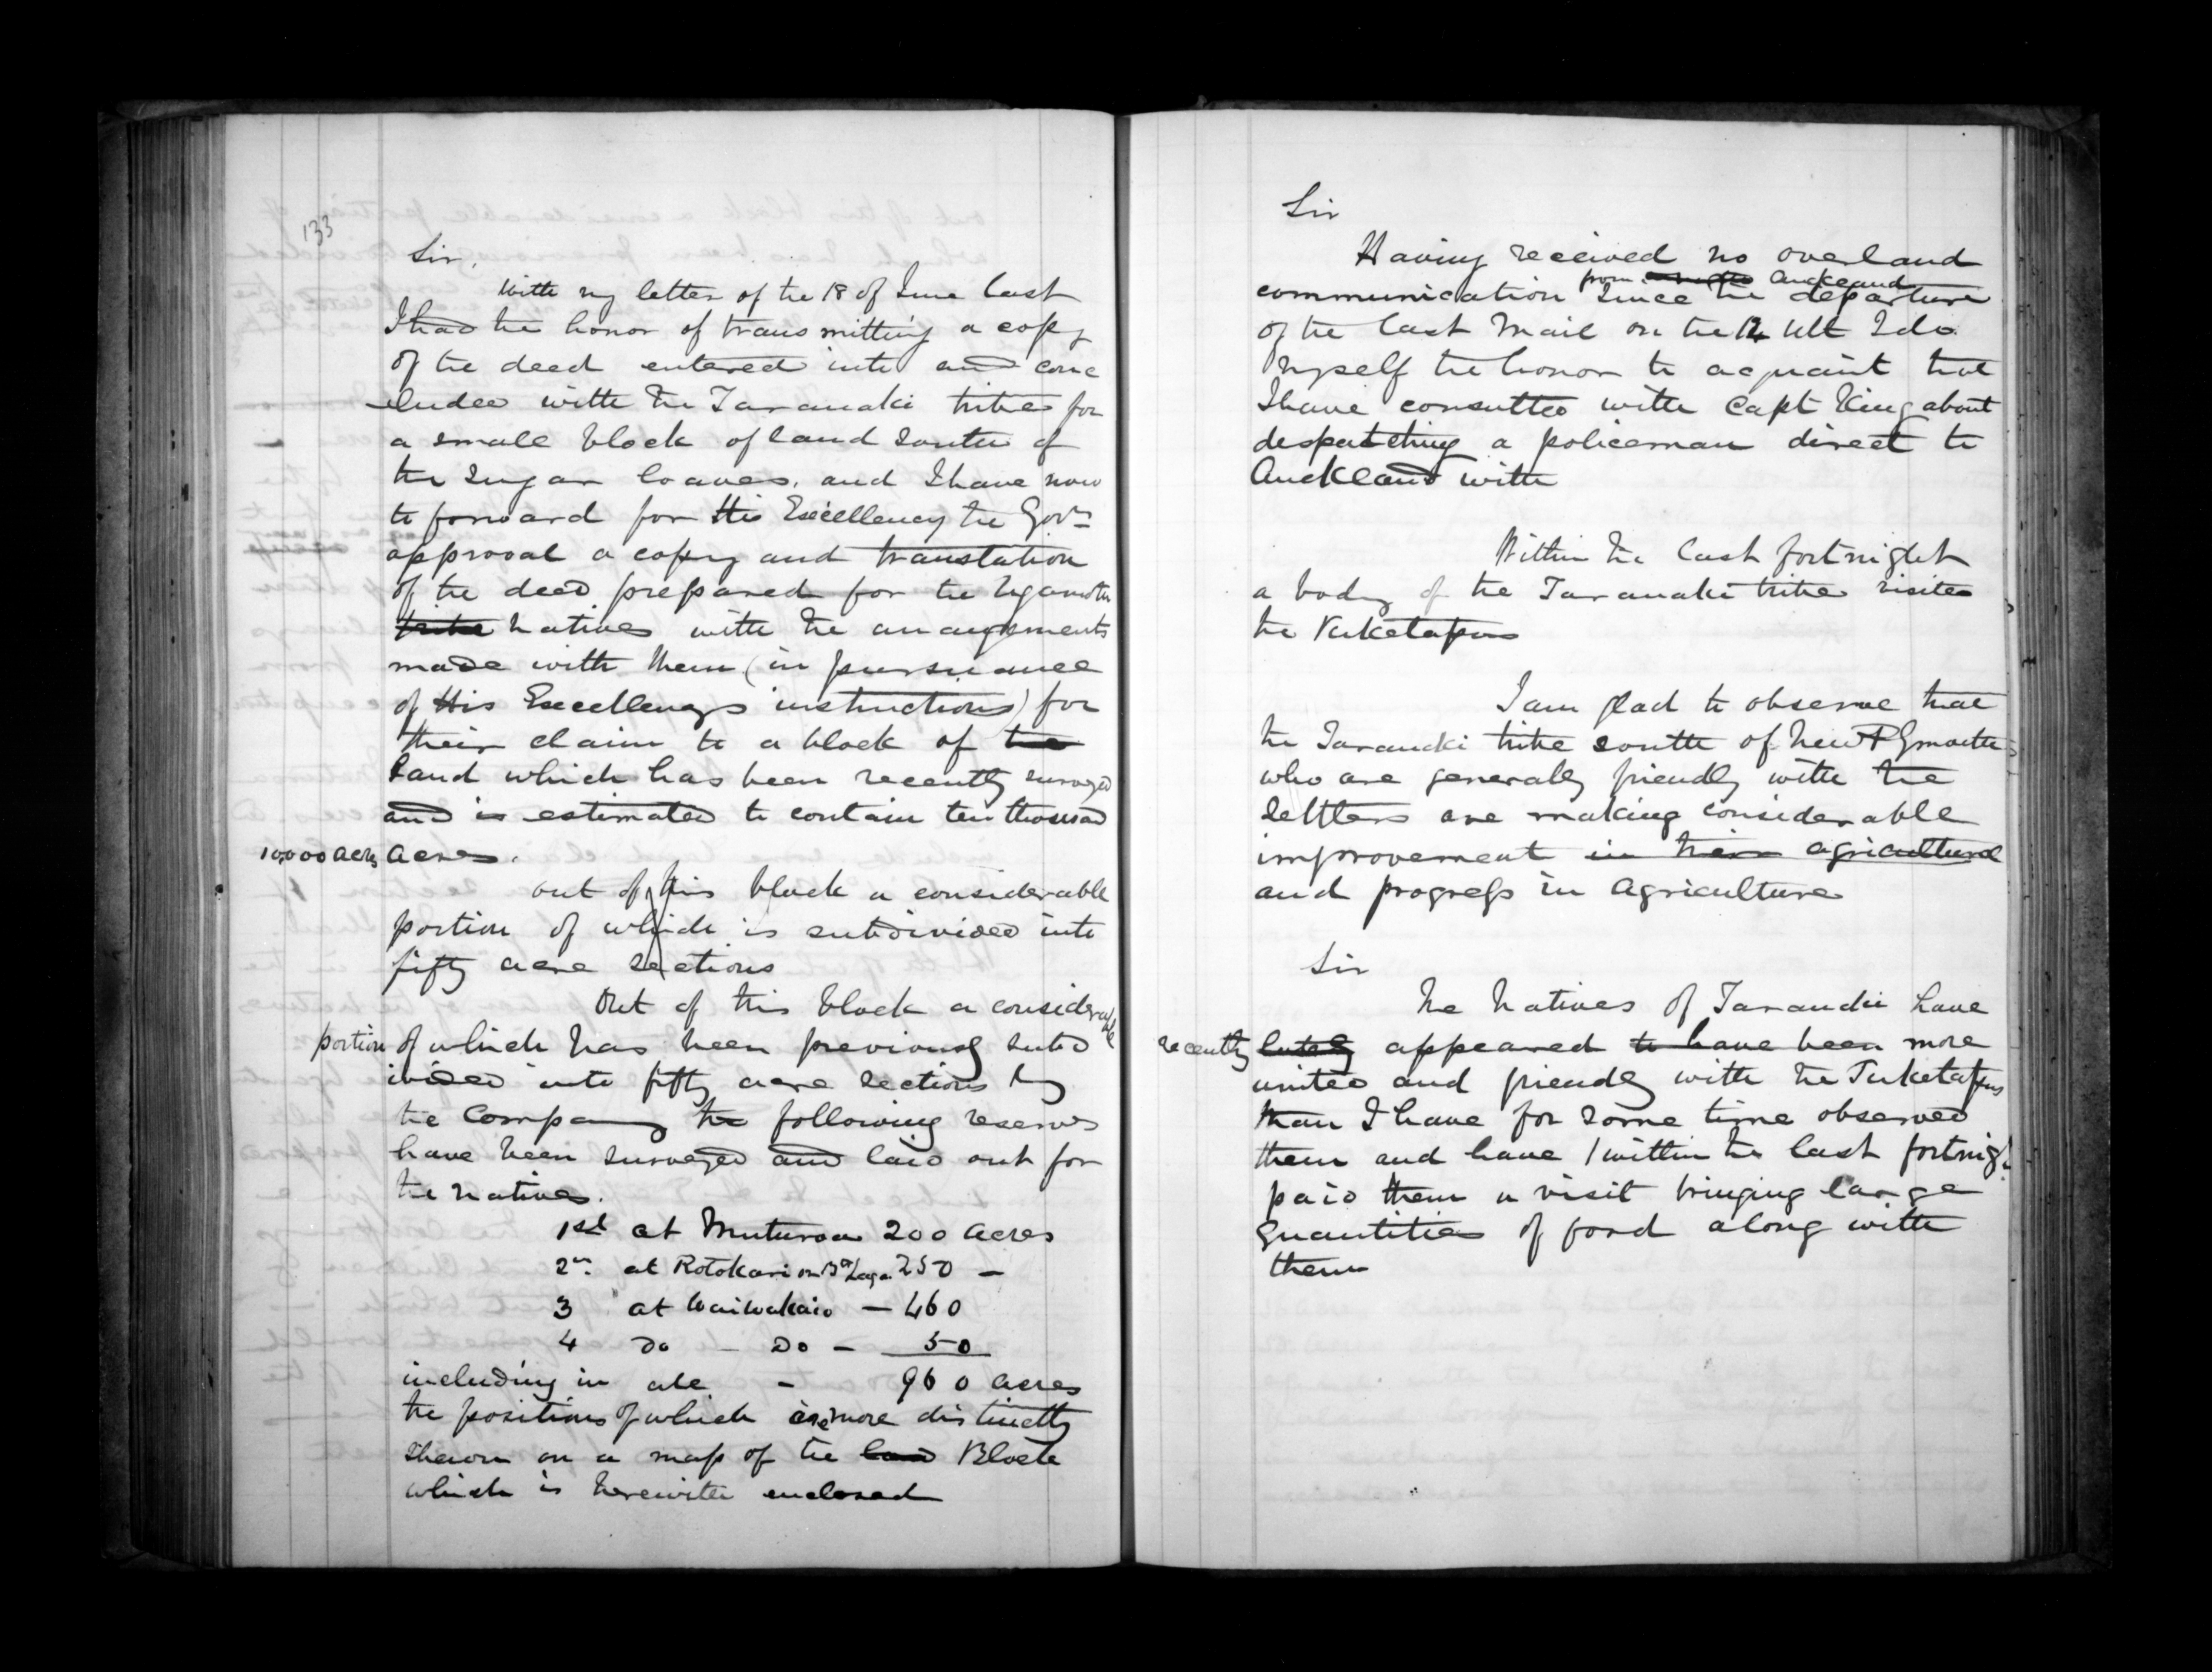 133
Sir,
With my letter of the 18 of June last
I had the honor of transmitting a copy
of the deed entered into and conc
-luded with the Taranaki tribe for
a small block of land south of
the Sugar loaves, and I have now
to forward for His Excellency the Govrs
approval a copy and translation
of the deed prepared for the Ngamotu
tribe natives with the arrangements
made with them (in pursuance
of His Excellencys instructions) for
their claim to a block of the
land which has been recently surveyed
and is estimated to contain ten thousand
10,000 acres acres.
out of this block a considerable
portion of which is subdivided into
fifty acre sections
Out of this block a considerable
portion of which has been previously subd
ivided into fifty acre sections by
the Company the following reserves
have been surveyed and laid out for
the natives.
1st at Muturoa 200 acres
2nd at Rotokari on 250 —
3 " at Waiwakaio — 460
4 Do — Do — 50
including in all — 960 acres
the positions of which are more distinctly
shewn on a map of the land Block
which is herewith enclosed
Sir
Having received no overland
from Auckland
communication since the departure
of the last Mail on the 12 Ult I do
myself the honor to acquaint that
I have consulted with Capt King about
despatching a policeman direct to
Auckland with
Within the last fortnight
a body of the Taranaki tribe visited
the Puketapus
I am glad to observe that
the Taranaki tribe south of New Plymouth
who are generally friendly with the
Settlers are making considerable
improvement in their agriculture
and progress in agriculture
Sir
The Natives of Taranaki have
recently lately appeared to have been more
united and friendly with the Puketapus
than I have for some time observed
them and have / within the last fortnight
paid them a visit bringing large
quantities of food along with
them